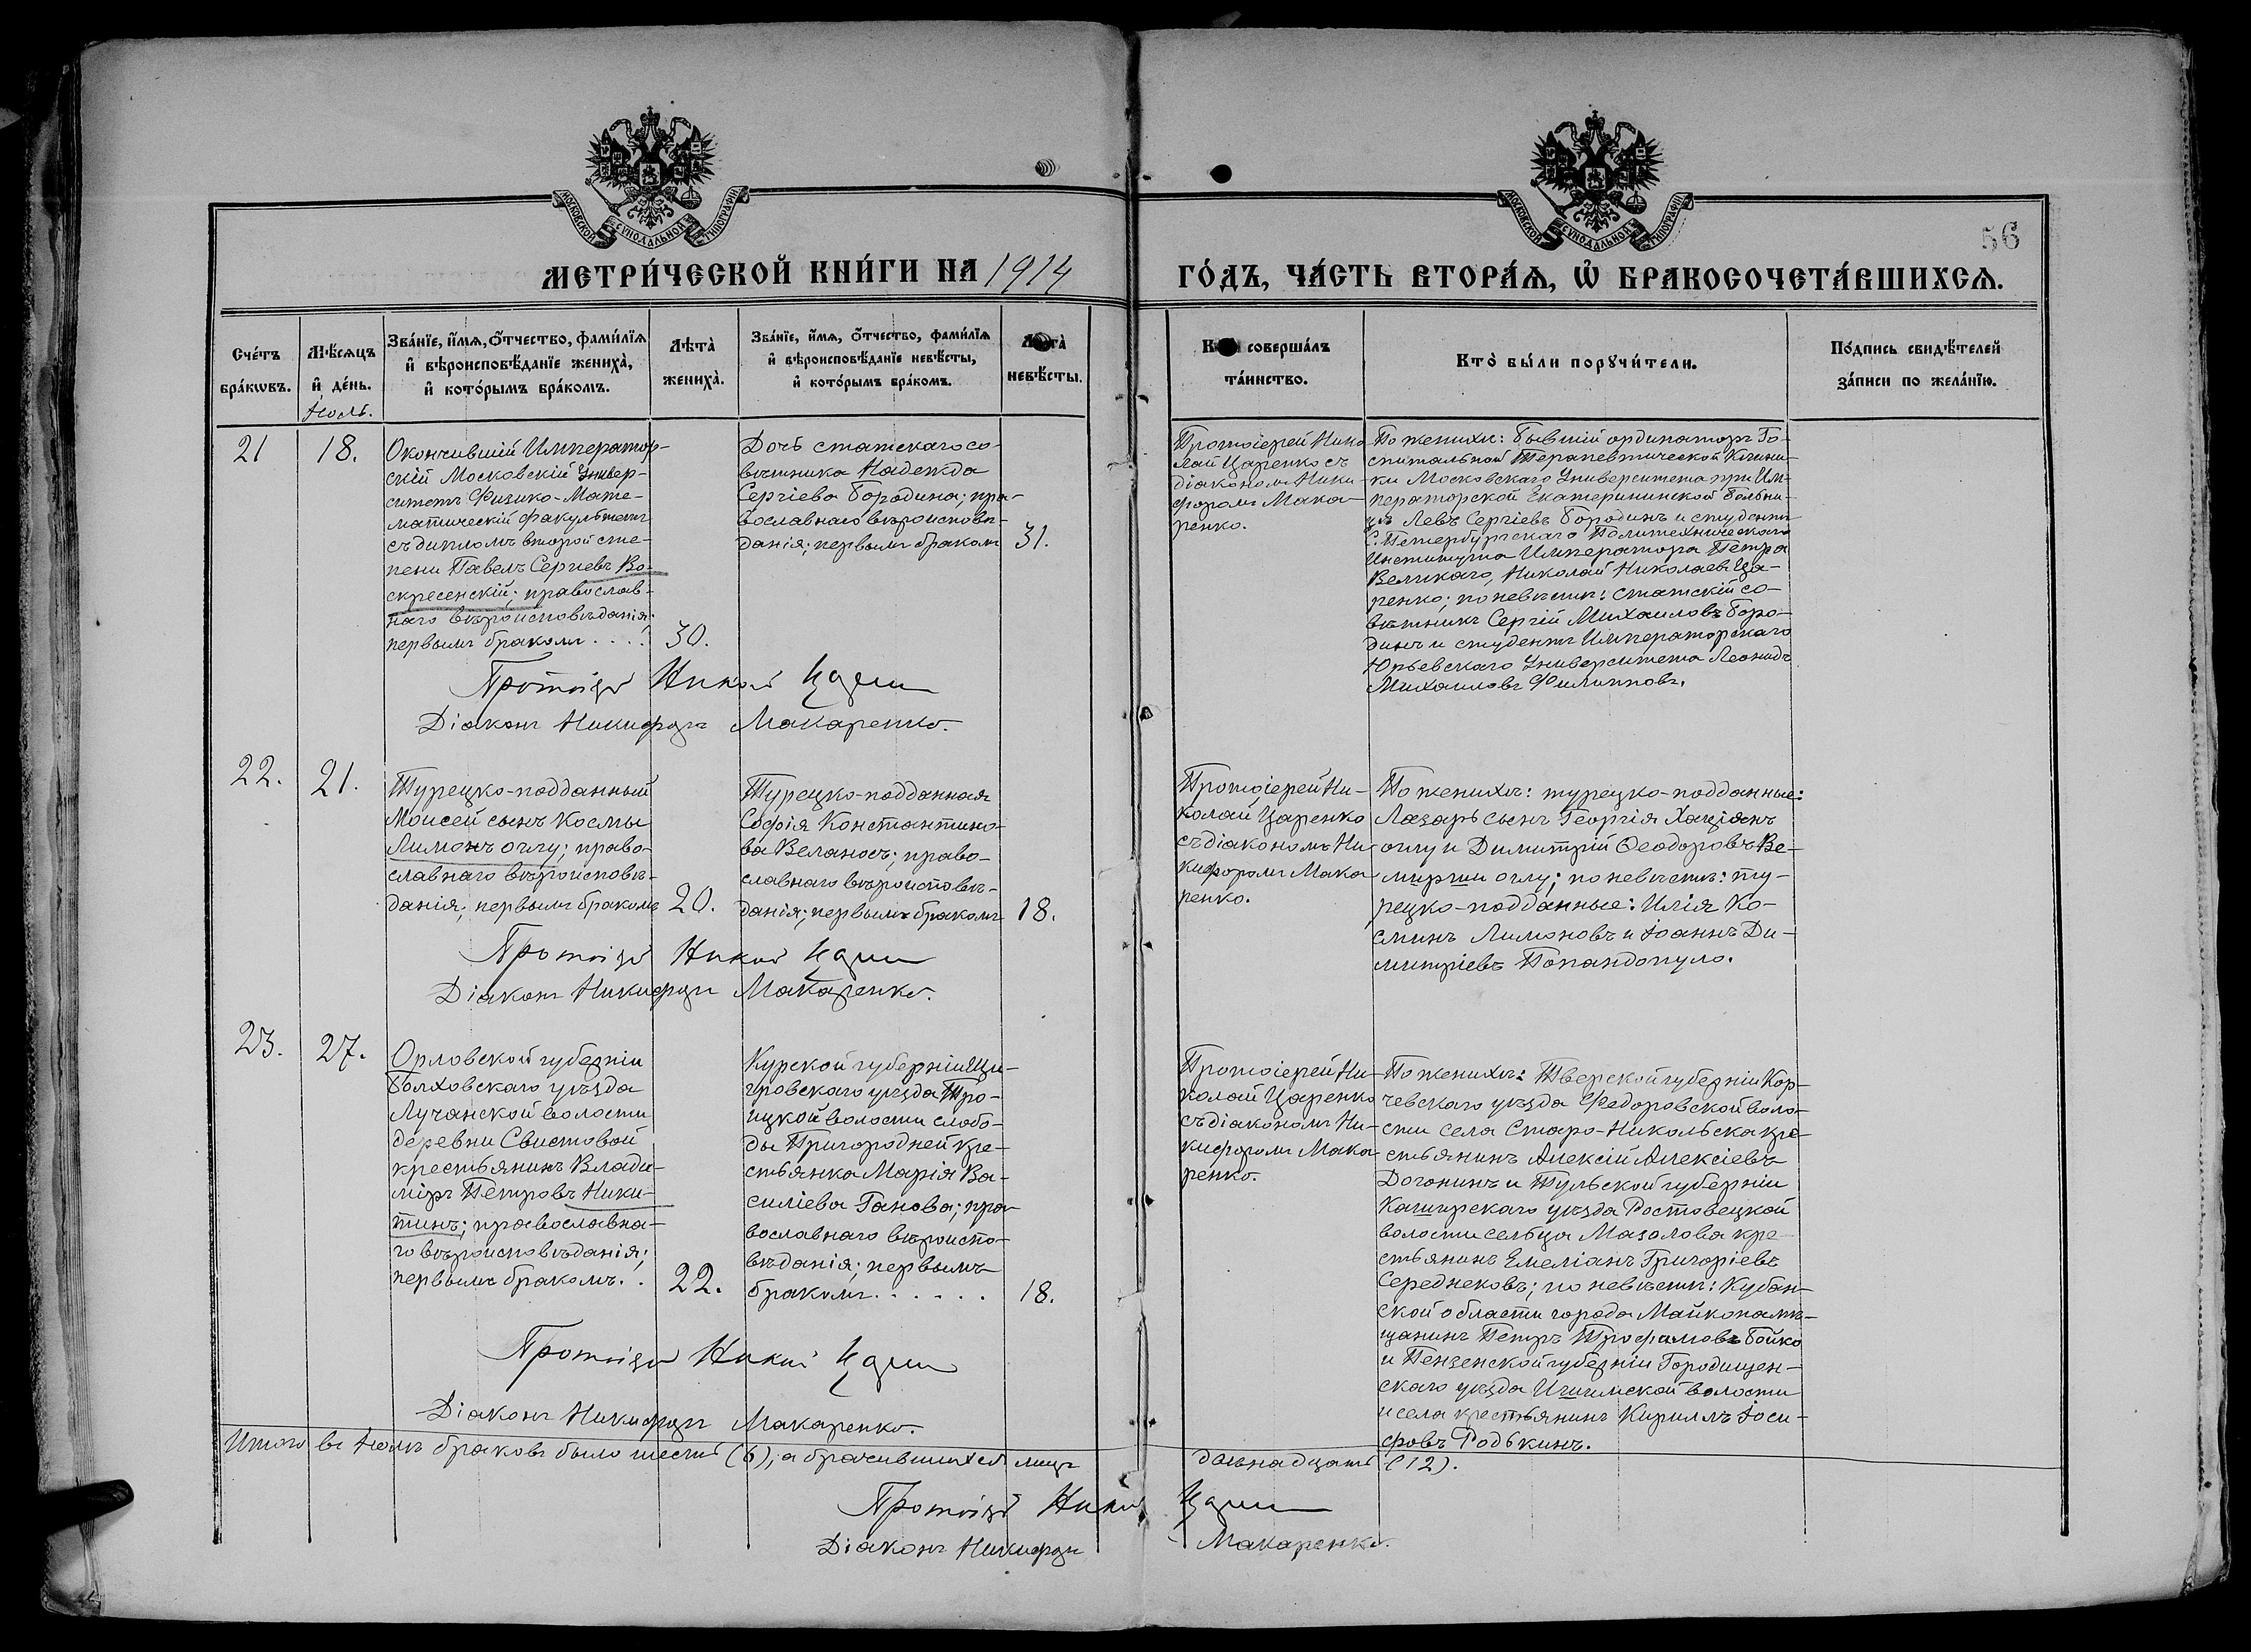 МОСКОВСКОЙ СУНОДАЛЬНОЙ ТИПОГРАФІИ
МОСКОВСКОЙ СУНОДАЛЬНОЙ ТИПОГРАФІИ
56
МЕТРИ́ЧЕСКОЙ КНИ́ГИ НА 1914
ГО́ДЪ, ЧА́СТЬ ВТОРА́Я, Ѡ БРАКОСОЧЕТА́ВШИХСЯ.
Сче́тъ
бра́кѡвъ.
Мѣ́сяцъ
и де́нь.
Іюль.
Зва́нїе, и́мя, о́тчество, фами́лїя
и вѣроисповѣ́данїе жениха̀,
и кото́рымъ бра́комъ.
Лѣта̀
жениха̀.
Зва́нїе, и́мя, о́тчество, фами́лїя
и вѣроисповѣ́данїе невѣ́сты,
и кото́рымъ бра́комъ.
невѣ́сты.
соверша́лъ
та́инство.
Кто̀ бы́ли порꙋчи́тели.
По́дпись свидѣ́телей
за́писи по жела́нїю.
21
18.
Окончившій Император-
скій Московскій Универ-
ситетъ Физико-Мате-
матическій факультетъ
съ дипломъ второй сте-
пени Павелъ Сергіевъ Во-
скресенскій; православ-
наго вѣроисповѣданія;
первымъ бракомъ . . . .
30.
Дочь статскаго со-
вѣтника Надежда
Сергіева Бородина; пра-
вославнаго вѣроисповѣ-
данія; первымъ бракомъ
31.
Протоіерей Нико-
лай Царенко съ
діакономъ Ники-
форомъ Мака-
ренко.
По женихѣ: бывшій ординаторъ Го-
спитальной Терапевтической Клини-
ки Московскаго Университета при Им-
ператорской Екатерининской больни-
цѣ Левъ Сергіевъ Бородинъ и студентъ
С.Петербургскаго Политехническаго
Института Императора Петра
Великаго, Николай Николаевъ Ца-
ренко; по невѣстѣ: статскій со-
вѣтникъ Сергій Михаиловъ Боро-
динъ и студентъ Императорскаго
Юрьевскаго Университета Леонидъ
Михаиловъ Филипповъ.
Протоіерей Николай Царенко
Діаконъ Никифоръ Макаренко.
22.
21.
Турецко-подданный
Моисей сынъ Космы
Лимонъ оглу; право-
славнаго вѣроисповѣ-
данія; первымъ бракомъ
20.
Турецко-подданная
Софія Константино-
ва Веланосъ; право-
славнаго вѣроисповѣ-
данія; первымъ бракомъ
18.
Протоіерей Ни-
колай Царенко
съ діакономъ Ни-
кифоромъ Мака
ренко.
По женихѣ: турецко-подданные:
Лазарь сынъ Георгія Хаціанъ
оглу и Димитрій Ѳеодоровъ Ве-
мирши оглу; по невѣстѣ: ту-
рецко-подданные: Илія Ко-
сминъ Лимоновъ и Іоаннъ Ди-
митріевъ Попандопуло.
Протоіерей Николай Царенко
Діаконъ Никифоръ Макаренко.
23.
27.
Орловской губерніи
Болховскаго уѣзда
Лучанской волости
деревни Свистовой
крестьянинъ Влади-
міръ Петровъ Ники-
тинъ; православна-
го вѣроисповѣданія;
первымъ бракомъ. .
22.
Курской губерніи Щи-
гровскаго уѣзда Тро-
ицкой волости слобо-
ды Пригородней кре-
стьянка Марія Ва-
силіева Ганова; пра-
вославнаго вѣроиспо-
вѣданія; первымъ
бракомъ. . . . . .
18.
Протоіерей Ни-
колай Царенко
съ діакономъ Ни-
кифоромъ Мака
ренко.
По женихѣ: Тверской губерніи Кор-
чевскаго уѣзда Федоровской воло-
сти села Старо-Никольска кре-
стьянинъ Алексій Алексіевъ
Догонинъ и Тульской губерніи
Каширскаго уѣзда Ростовецкой
волости сельца Мазалова кре
стьянинъ Емеліанъ Григоріевъ
Середнековъ; по невѣстѣ: Кубан-
ской области города Майкопа мѣ-
щанинъ Петръ Трофимовъ Бойко
и Пензенской губерніи Городищен-
скаго уѣзда Ишимской волости
и села крестьянинъ Кириллъ Іоси-
фовъ Родькинъ.
Протоіерей Николай Царенко
Діаконъ Никифоръ Макаренко.
Итого въ Іюлѣ браковъ было шесть (6), а брачившихся лицъ двѣнадцать (12).
Протоіерей Николай Царенко
Діаконъ Никифоръ Макаренко.